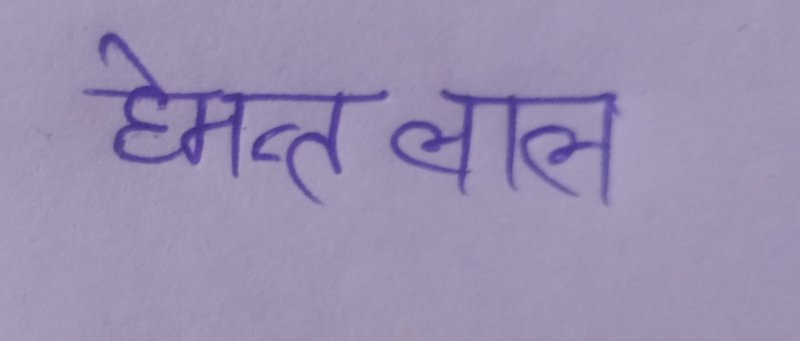 हेमन्त लाल